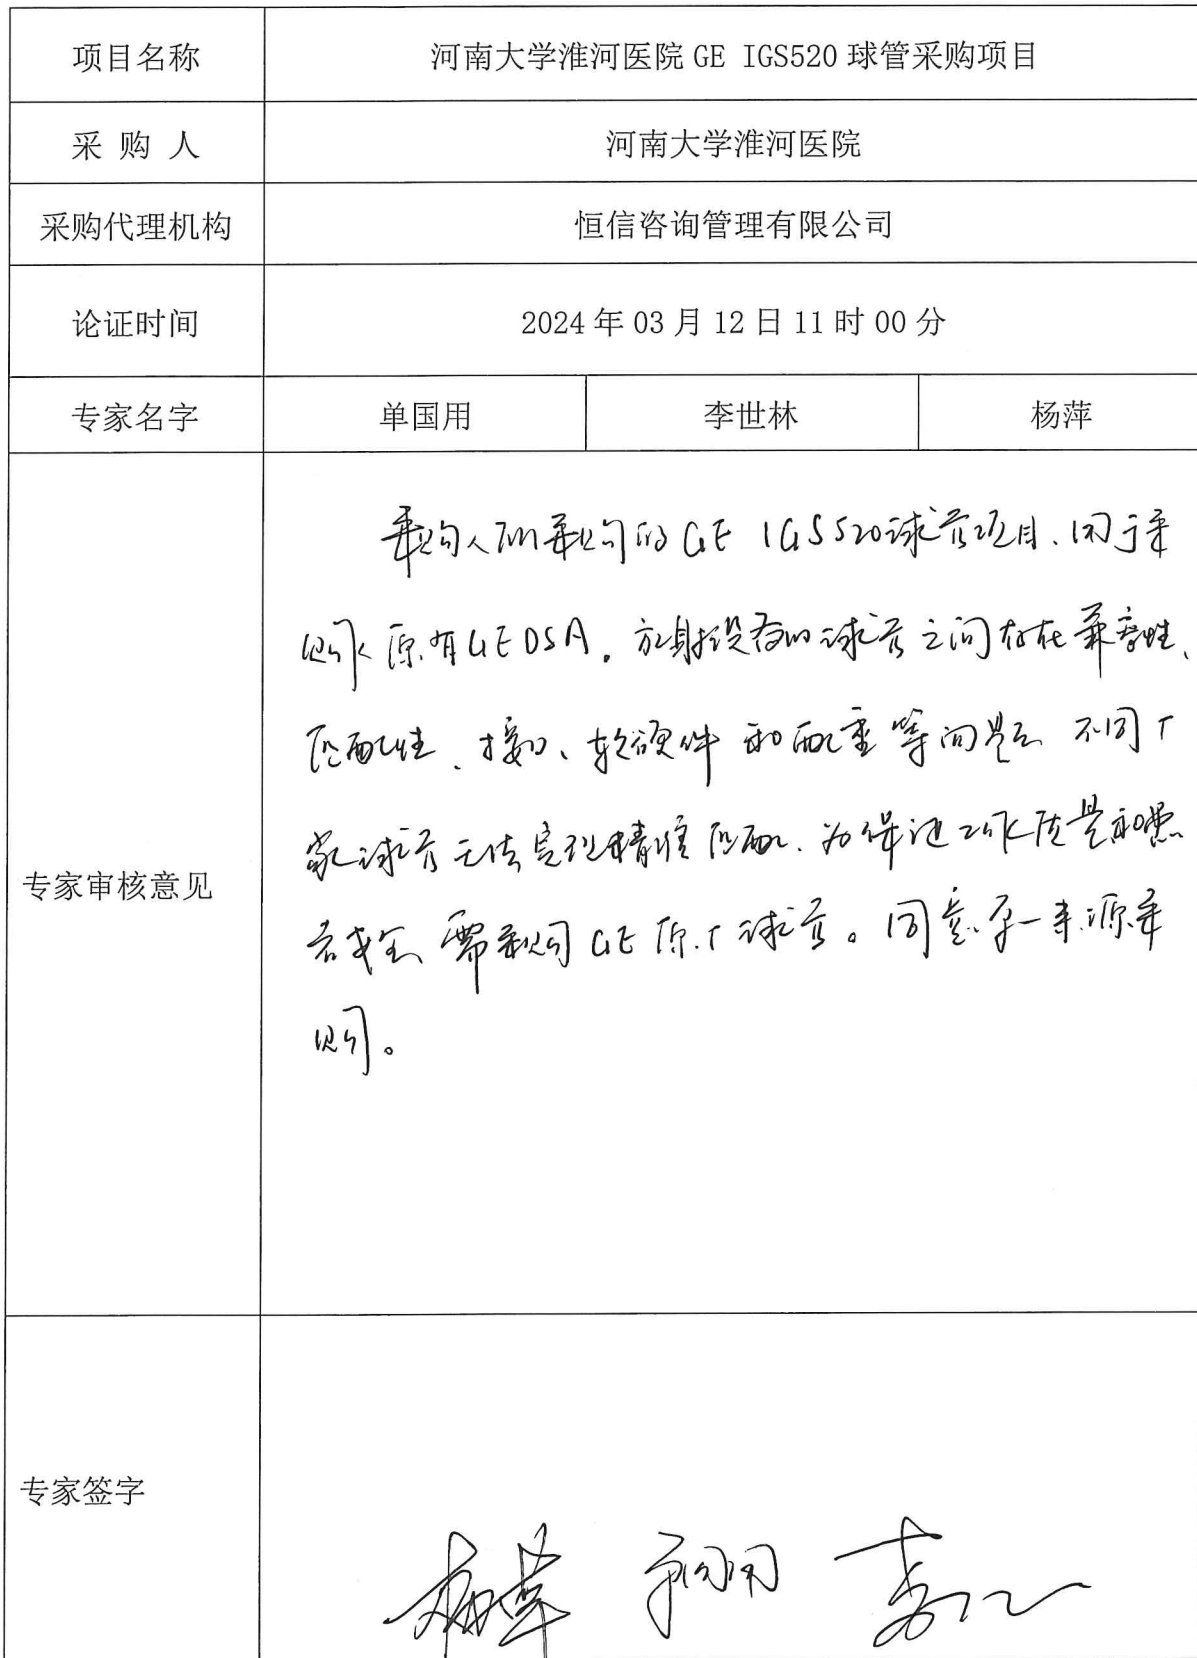 项目名称 河南大学淮河医院 GE IGS520 球管采购项目
采 购 人 河南大学淮河医院
采购代理机构 恒信咨询管理有限公司
论证时间 2024 年 03 月 12 日 11 时 00 分
专家名字 单国用 李世林 杨萍
专家审核意见
采购人所采购的GE IGS520球管项目、用于采
购人原有GE DSA。放射设备的球管之间存在兼容性、
匹配性、接口、软硬件和配重等问题 不同厂
家球管无法实现精准匹配、为保证工作质量和患
者安全、需采购GE原厂球管。同意单一来源采
购。
专家签字
杨萍 单国用 李世林